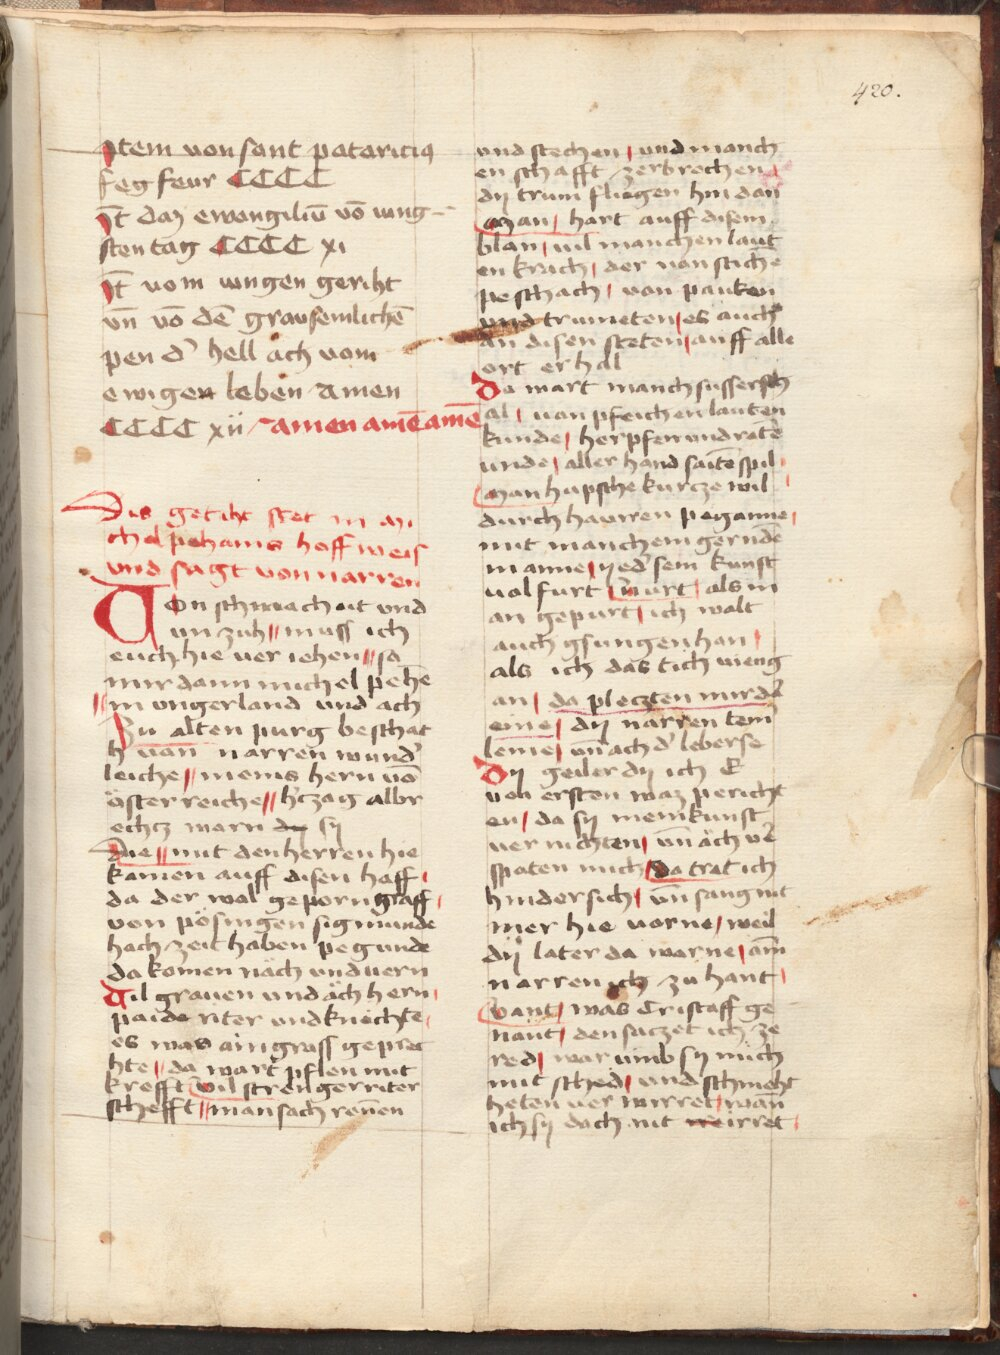 420.
Item von sant patericius
fegfeur CCCC
It daz ewangiliū vō iung-
sten tag CCCC xi
It vom iungen geriht
vn̄ vō dē grausemlichē
pen d' hell ach vom
ewigen leben Amen
CCCC xii Amen amē amē
Dis getiht stet in mi
chel pehams hoff weis
vnd sagt von narren
Von schwachait vnd
vnzuh // muss ich
euch hie veriehen // so
mir dann michel pehē
// in vngerland vnd ach
Zu alten purg beschat
h van narren wund'
leiche // meins hern vō
österreiche // h'tzag albr
echtz warn sy
Die // mit den herren hie
kamen auff disen hoff
da der wal geporn graff
von pösingen sigmunde
hach zeit haben pegunde
da komen nach vnd vern
Vil graven vnd äch hern
paide riter vnd knechte
es was ain grass geprec
hte // da wart pflen mit
krefft vil strenger riter
schefft // man sach rennen
vnd stechen / vnd manch
en schafft zerbrechen
dy trum fliegen hin dan
Man / hart auff disem
blan / vil manchen laut
en krach / der von stiche
peschach / von pauken
vnd trumeten / es auch
an disen steten / auff alle
ort erhal
Da wart manch susser sch
al / von pfeichen lauten
kunde / herpfen vnd rate
vnde / aller hand saitē spil
Man hupsche kurcze wil
durch hauren peganne
mit manchem gerndē
manne / yed' sein kunst
volfurt / wurt / als in
an gepurt / ich walt
auch gsungen han
als ich das tich wieng
an / da pleczten mir d'
eine / dy narren tem
leme / vn̄ ach d' leberse
Dy geiler dy ich E
von ersten waz pericht
en / da sy mein kunst
vernichten / vn̄ äch v'
spoten mich / da trat ich
hindersich / vn̄ sang nit
mer hie vorne / weil
dy later da warne / am
narren ich zu hant
vant / was Cristaff ge
nant / den saczet ich ze
red / war vmb sy mich
mit sched / vnd schmeht
heten verwirret / wan
ich sy dach nit irret